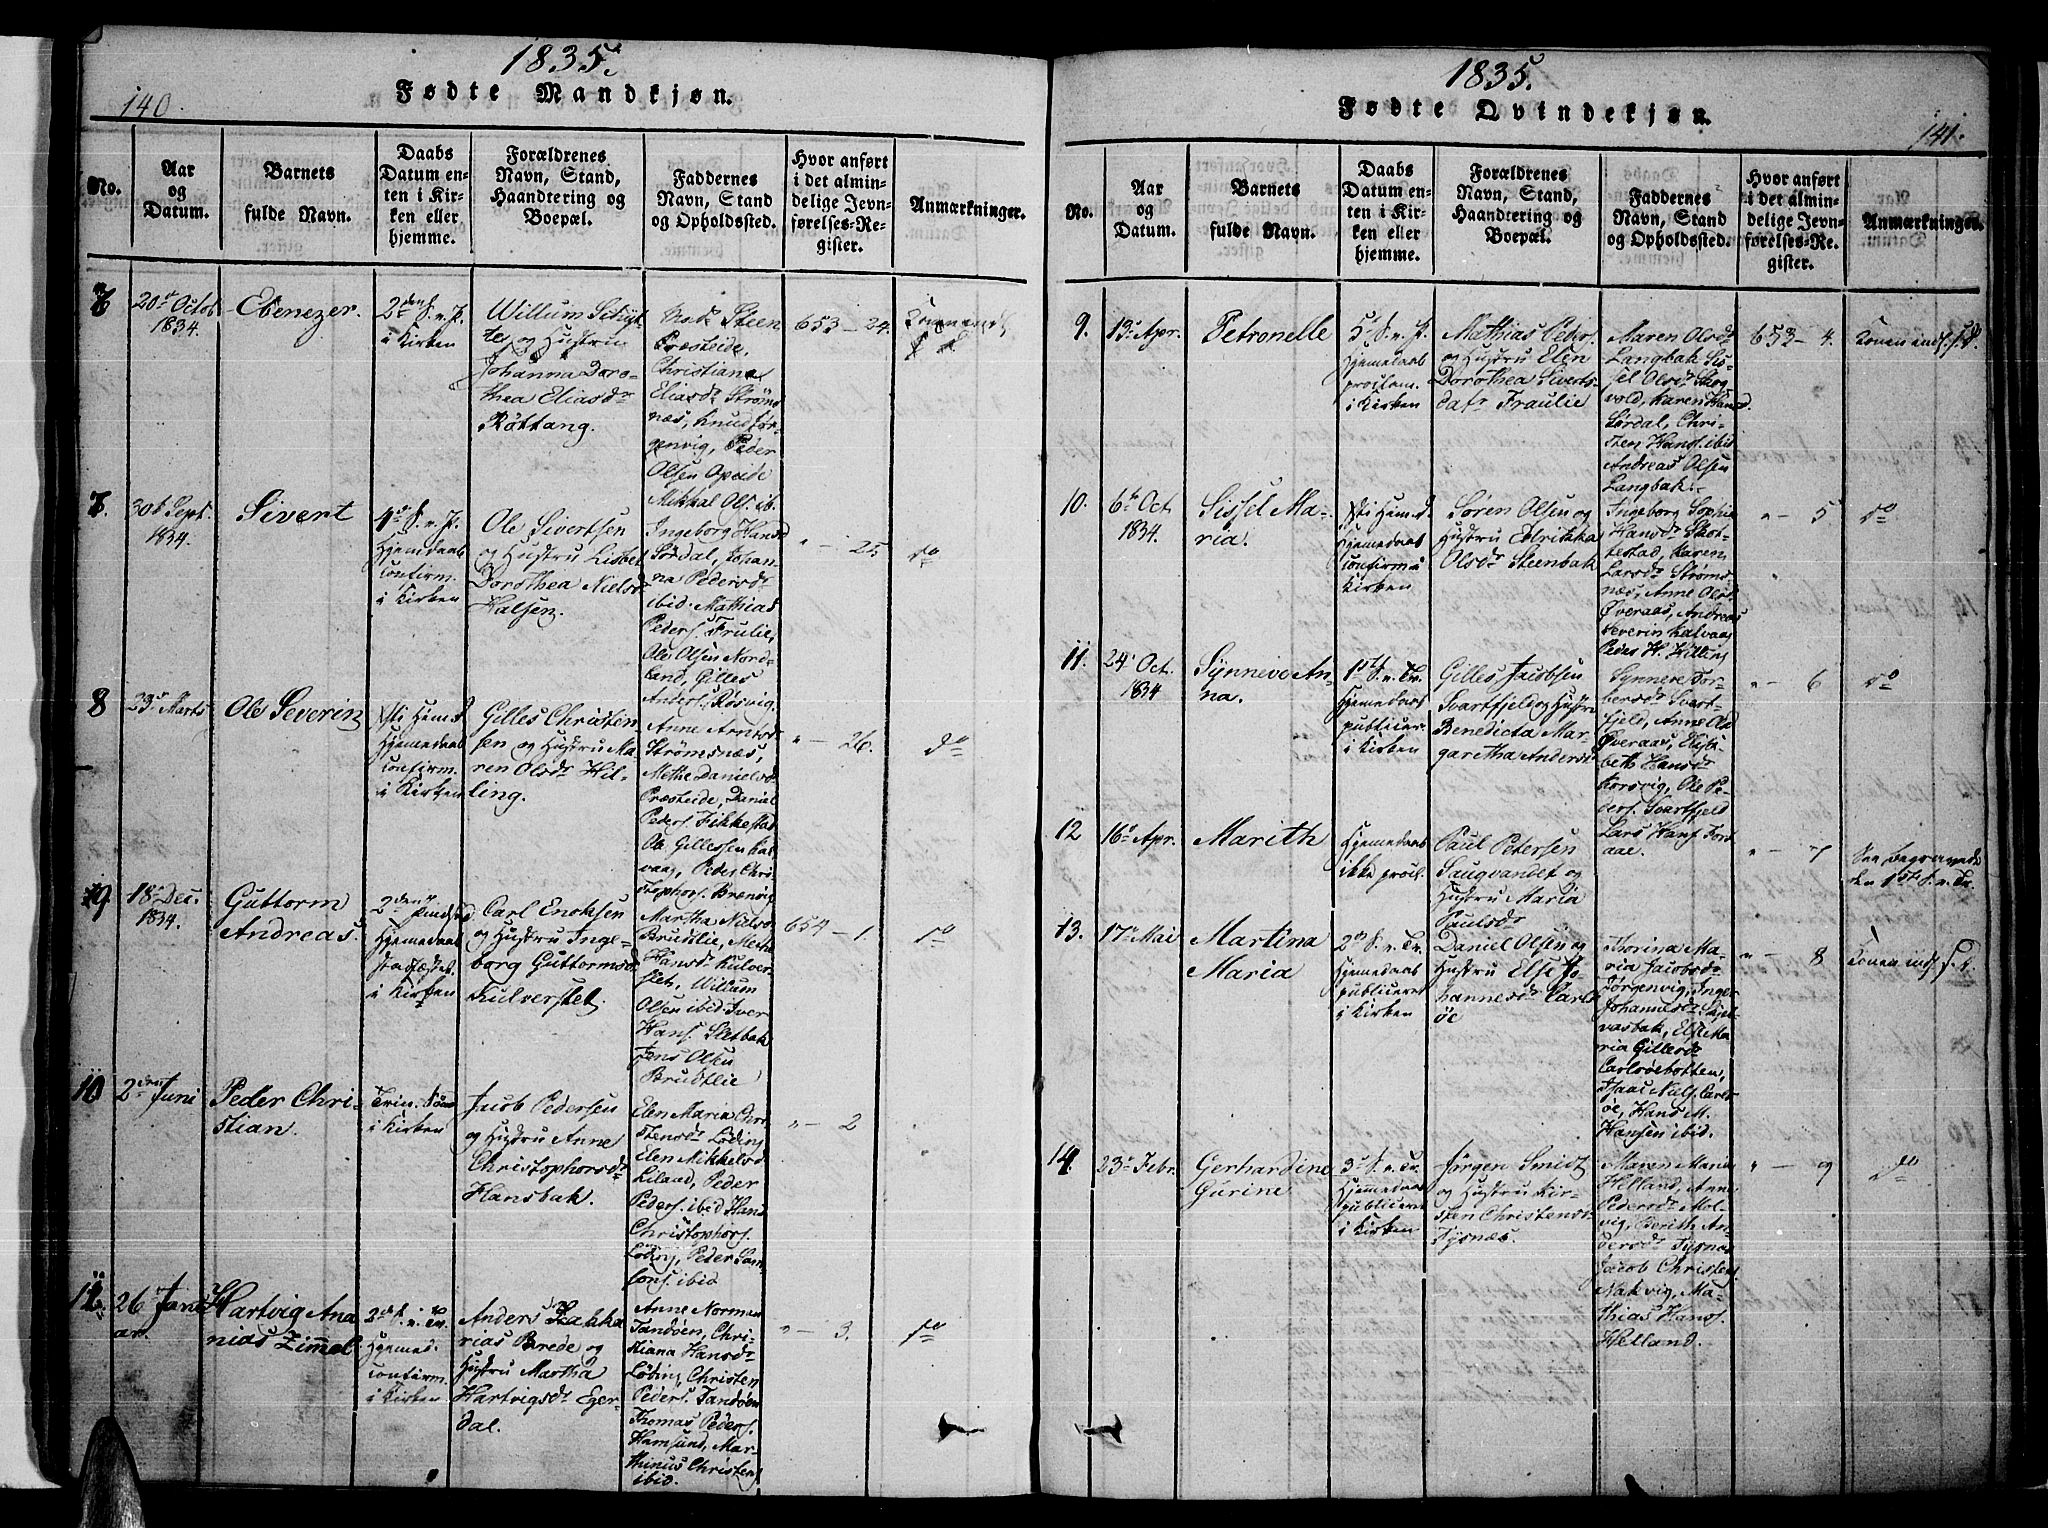 1835.
140.
Fødte Mandkjøn.
No.
Aar
og
Datum.
Barnets
fulde Navn.
Daabs
Datum en-
ten i Kir-
ken eller
hjemme.
Forældrenes
Navn, Stand,
Haandtering og
Boepæl.
Faddernes
Navn, Stand
og Opholdssted.
Hvor anført
i det almin-
delige Jevn-
førelses-Re-
gister.
Anmærkninger.
20de Octob
1834.
Ebenezer.
2den S. v. P.
i Kirken
Willum
og Hustru
Johanna Doro-
thea Eliasdr
Røttang.
Steen
Præsteide,
Christiane
Eliasdr Strøms
næs, Knud Jør-
genvig, Peder
Olsen Opeide
653 — 24.
7.
30t Sept.
1834.
Sivert
4de S. v. P.
Hjemedaab
confirm.
i Kirken
Ole Sivertsen
og Hustru Lisbet
Dorothea Nielsd
Halsen.
Mikkal Ols. ib.
Ingeborg Hansd
Sørdal, Johan-
na Pedersdr
ibid. Mathias
Peders. Fraulie,
Ole Olsen Nord-
land, Gilles
Anders. Røsvig.
" — 25.
do
8
23de Marts
Ole Severin
Hjemedaab
confirm.
i Kirken
Gilles Christen
sen og Hustru Ma-
ren Olsdr Hil-
ling.
Anne Arntsd
Strømsnæs,
Methe Danielsd
Præsteide, Daniel
Peders. Fikkestad
Ole Gillessen Kal-
vaag, Peder Chri-
stophers. Brænvig
" — 26.
do
9
18de Dec.
1834.
Guttorm
Andreas.
2den Pindsed.
Hjemedaab
stadfæstet
i Kirken
Carl Enoksen
og Hustru Inge-
borg Guttormsd
Kulverstel.
Martha Nielsd
Brudtlie, Methe
Hansd Kulver-
stel, Willum
Olsen ibid. Iver
Hans. Sletbak
Jens Olsen
Brudtlie
654 — 1.
do
10
2den Juni
Peder Chri-
stian.
Trin. Sønd
i Kirken
Jacob Pedersen
og Hustru Anne
Christophersdr
Hansbak.
Elen Maria Chri-
stensdr Løding
Elen Mikkelsd
Liland, Peder
Peders. ibid Hans
Christophers.
Løding, Peder Sam-
sons. ibid
" — 2
26 Janu
ar.
Hartvig Ana
nias Zimmel.
2d S. v. Tr.
Hjemed.
confirm.
i Kirken
Anders Zakka
rias Brede og
Hustru Martha
Hartvigsdr Eger-
dal.
Anne Norman
Tandøen, Chri-
stiana Hansdr
Løding, Christen
Peders. Tandøen
Thomas Peders.
Hamsund, Mar-
thinus Christens
ibid.
" — 3.
do
1835.
141.
Fødte Qvindekjøn.
No.
Aar
og
Datum.
Barnets
fulde Navn.
Daabs
Datum en-
ten i Kir-
ken eller
hjemme.
Forældrenes
Navn, Stand,
Haandtering og
Boepæl.
Faddernes
Navn, Stand
og Opholdssted.
Hvor anført
i det almin-
delige Jevn-
førelses-Re-
gister.
Anmærkninger.
9.
13de Apr.
Petronelle
5te S. v. P.
Hjemedaab
proclam.
i Kirken
Mathias Peders.
og Hustru Elen
Dorothea Siverts-
datr Fraulie
Maren Olsdr
Langbak Sis-
sel Olsdr Skog-
vold, Karen Hansd.
Sørdal, Chri-
sten Hans. ibid
Andreas Olsen
Langbak.
653 — 4.
Konen inds.
10.
6te Oct
1834.
Sissel Ma-
ria.
Hjemedaab
confirm. i
Kirken
Søren Olsen og
Hustru Ulrikka
Olsdr Steenbak
Ingeborg Sophie
Hansdr Skot-
testad, Karen
Larsdr Strøms-
næs, Anne Olsd
Øveraas, Andreas
Severin Kalvaag
Peder H. Hilling
" — 5
do
11.
24de Oct.
1834
Synneve An-
na.
1ste S. v. Tr.
Hjemedaab
publicer.
i Kirken
Gilles Jacobsen
Svartfjeld og Hustru
Benedicta Mar-
garetha Andersd
Synneve Tor-
bersdr Svart-
fjeld, Anne Olsd
Øveraas, Elisa-
beth Hansdr
Korsvig, Ole Pe-
ders. Svartfjeld
Lars Hans. Ford-
aae.
" — 6
do
12
16de Apr.
Marith
Hjemedaab
ikke procl.
Paul Petersen
Saugvandet og
Hustru Maria
Paulsdr
" — 7
See begravede
den 1ste S. v. Tr.
13.
17de Mai
Martina
Maria
2den S. v. Tr.
Hjemedaab
publiceret
i Kirken
Daniel Olsen og
Hustru Else Jo-
hannesdr Carls-
øe
Thorina Ma-
ria Jacobsdr
Jørgenvig, Inger
Johannesdr
vasbak, Else Ma-
ria Gillesdr
Carlsøebotten,
Isaac Nils. Carls-
øe, Hans M.
Hansen ibid.
" — 8
Konen inds.
14.
23de Febr.
Gerhardine
Gurine
3de S. v. Tr.
Hjemedaab
publiceret
i Kirken
Jørgen Smidt
og Hustru Kir-
sten Christensd
Tysnæs.
Maren Maria
Helland, Anne
Pedersdr Mol-
vig, Berith An-
dersdr Tysnæs
Jacob Christens
Nakvig, Ma-
thias Hans.
Helland.
" — 9
do